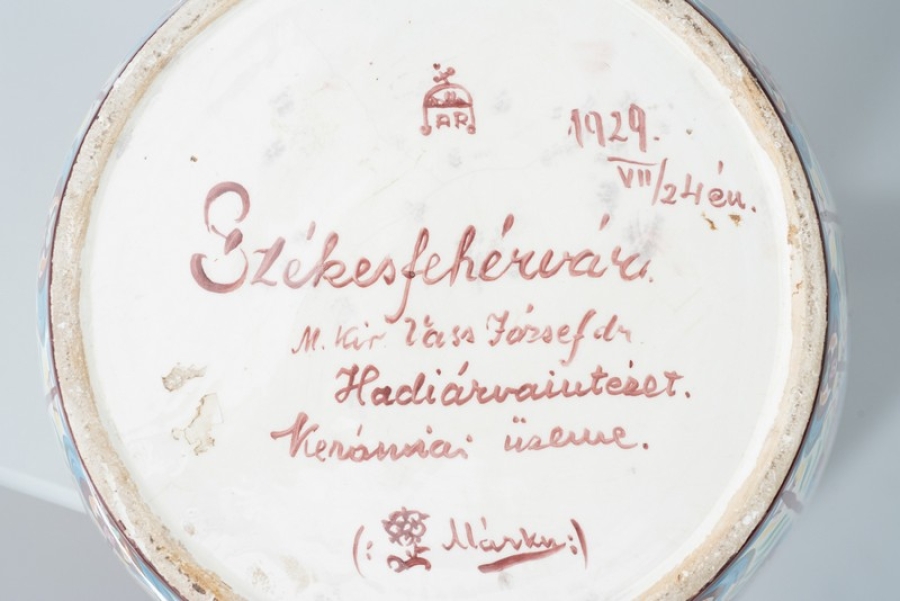 AR
1929.
VII/24 én.
Székesfehérvár.
M. Kir Vass József dr
Hadiárvaintézet.
Kerámiai üzeme.
(: Márku :)